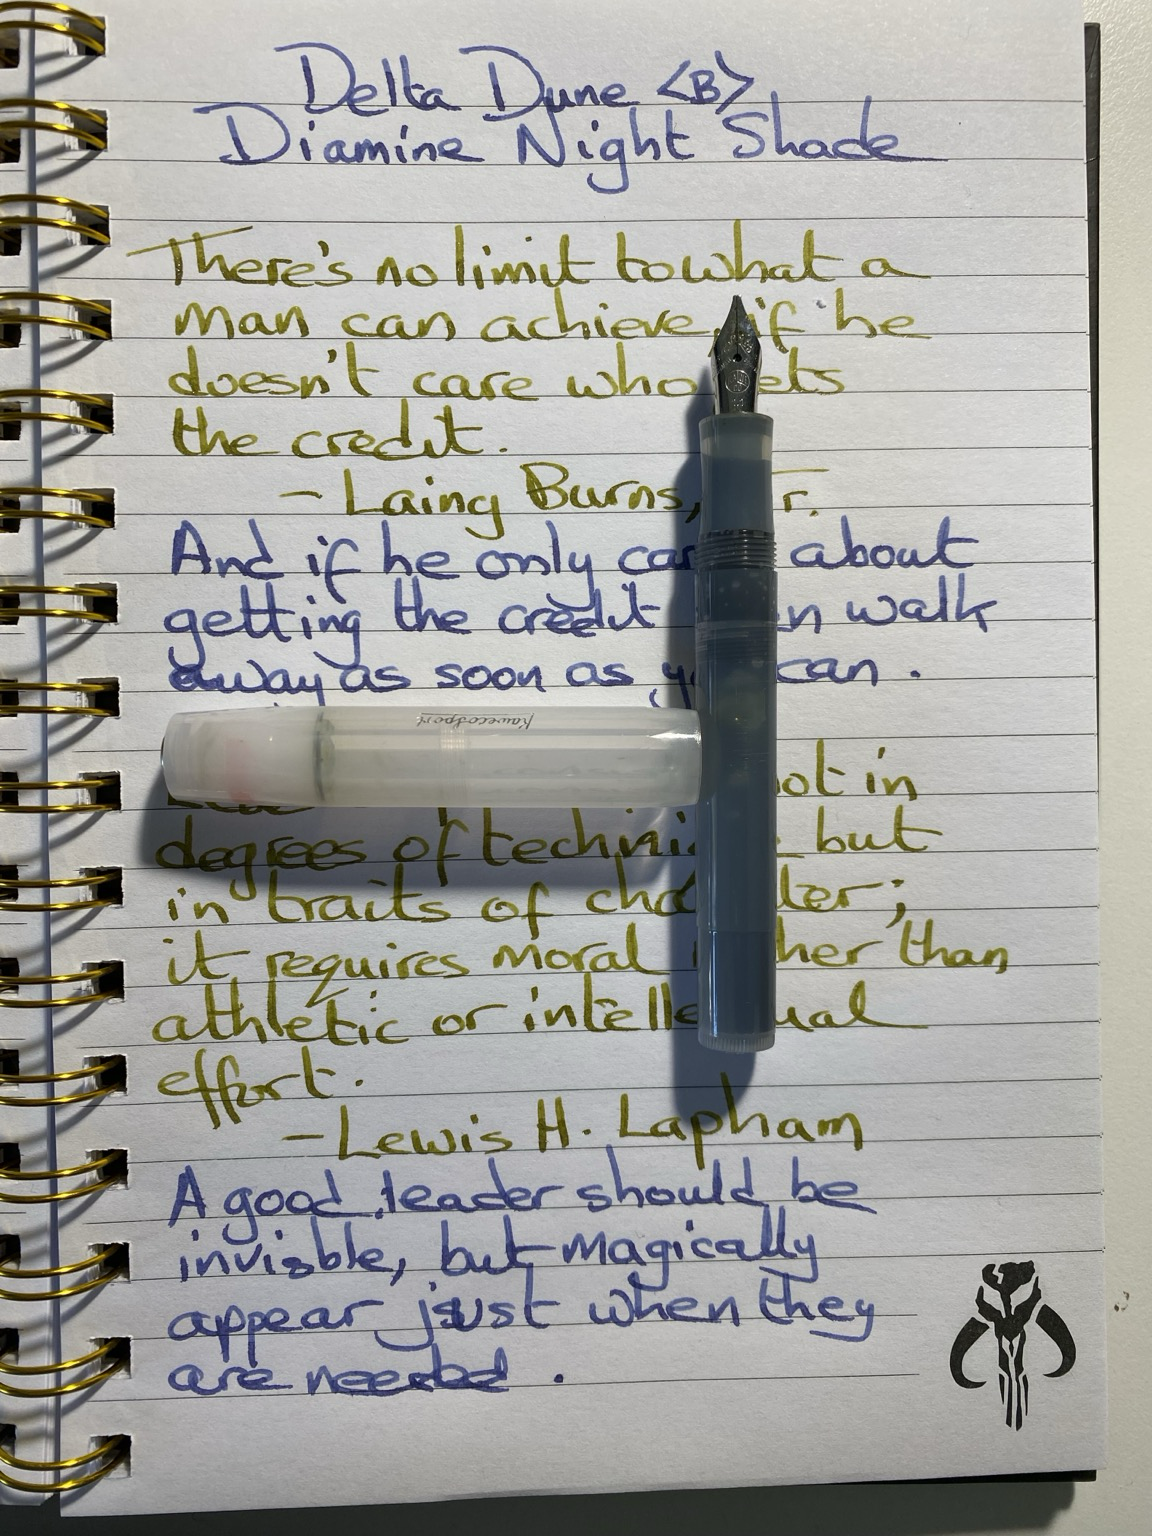 Delta Dune <B>
Diamine Night Shade
There's no limit to what a
man can achieve, if he
doesn't care who ets
the credit.
- Laing Burns, r.
And if he only car about
getting the credit n walk
away as soon as y can.
KawecoSport
not in
degrees of techni but
in traits of cha ter;
it requires moral her than
athletic or intelle ual
effort.
- Lewis H. Lapham
A good leader should be
invisble, but magically
appear just when they
are needed.